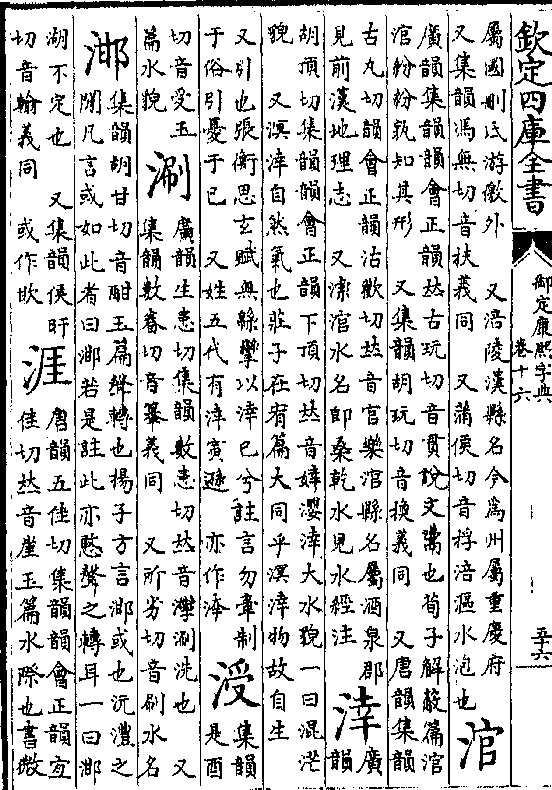 欽定四庫全書
御定康熙字典
卷十六
五十六
屬國剛氐游徼外 又涪陵漢縣名今為州屬重慶府
又集韻馮無切音扶義同 又蒲侯切音掊涪漚水泡也 涫
廣韻集韻韻會正韻𠀤古玩切音貫說文灊也荀子解蔽篇涫
涫紛紛孰知其形 又集韻胡玩切音換義同 又唐韻集韻
古丸切韻會正韻沽歡切𠀤音官樂涫縣名屬酒泉郡
見前漢地理志 又潔涫水名即桑乾水見水經注 涬 廣韻
胡頂切集韻韻會正韻下頂切𠀤音婞瀴涬大水貌一曰混茫
貌 又溟涬自然氣也莊子在宥篇大同乎溟涬物故自生
又引也張衡思玄賦無緜攣以涬已兮註言勿牽制
于俗引憂于己 又姓五代有涬寅遜 亦作滜 涭 集韻是酉
切音受玉
篇水貌 涮 廣韻生患切集韻數患切𠀤音灓涮洗也 又
集韻數眷切音纂義同 又所劣切音刷水名
𣵻 集韻胡甘切音酣玉篇聲轉也揚子方言𣵻或也沅澧之
閒凡言或如此者曰𣵻若是註此亦憨聲之轉耳一曰𣵻
湖不定也 又集韻侯旰
切音翰義同 或作㰹 涯 唐韻五佳切集韻韻會正韻宜
佳切𠀤音崖玉篇水際也書微